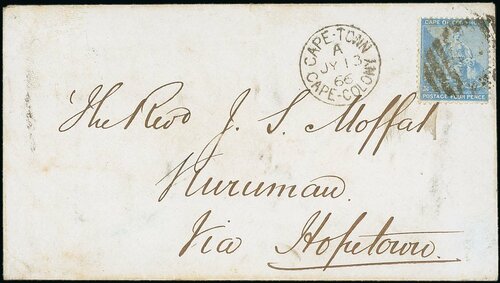 CAPE OF GOOD HOPE
POSTAGE FOUR PENCE
CAPE-TOWN
A
JY 13
66
CAPE-COLONY
The Revd J. S. Moffat
Kuruman.
Via Hopetown.